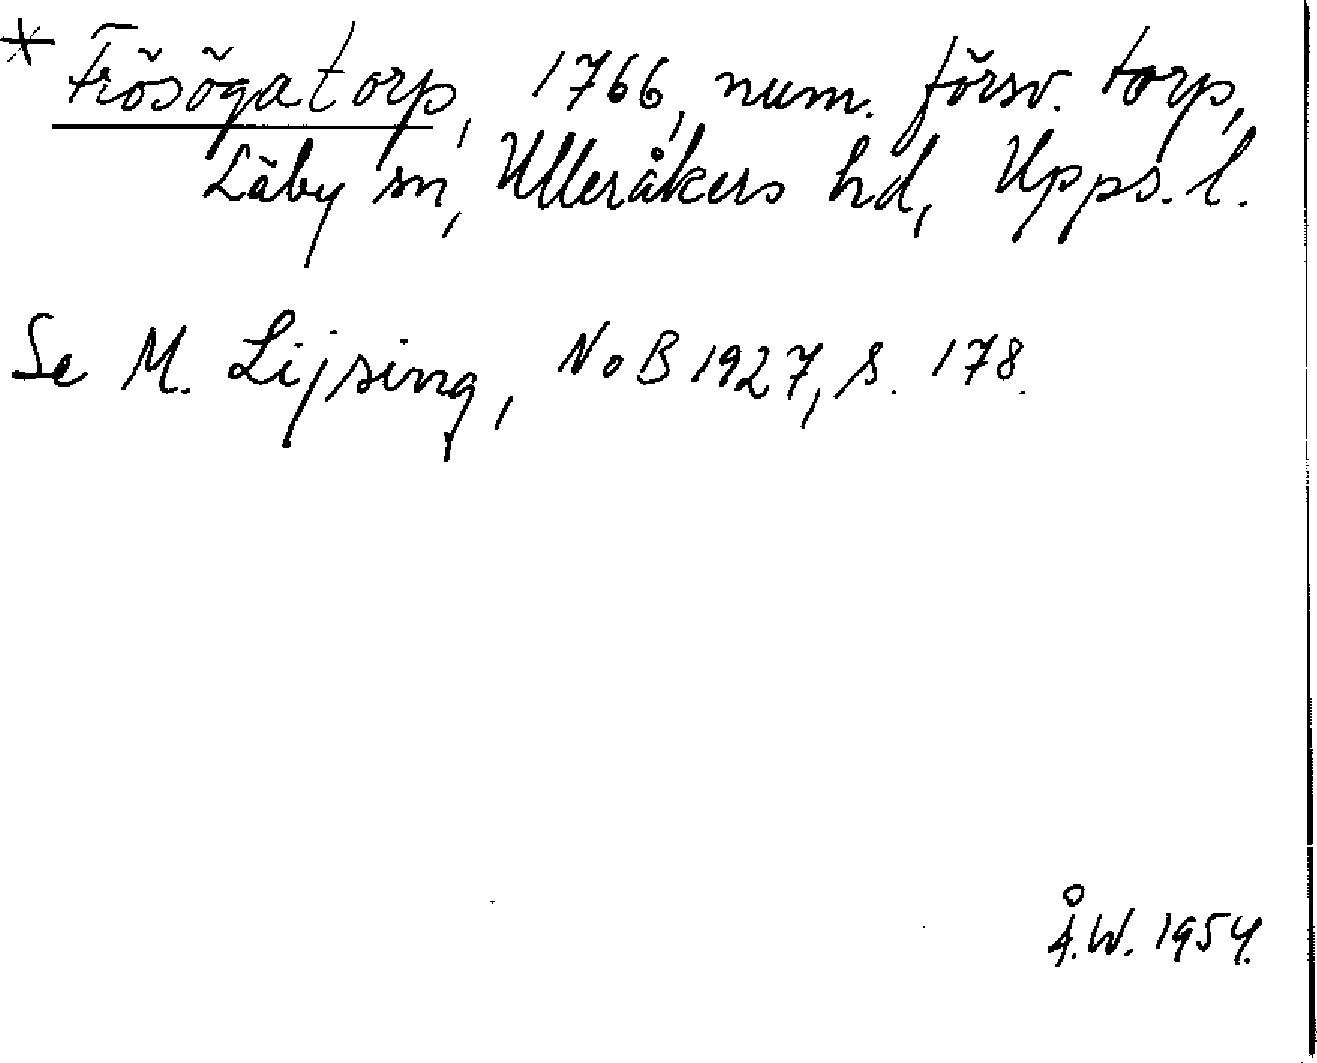 * Frösögatorp, 1766, num. försv. torp,
Läby sn, Ulleråkers hd, Upps. l.
Se M. Lijsing, NoB 1927, s. 178.
Å.W. 1954.